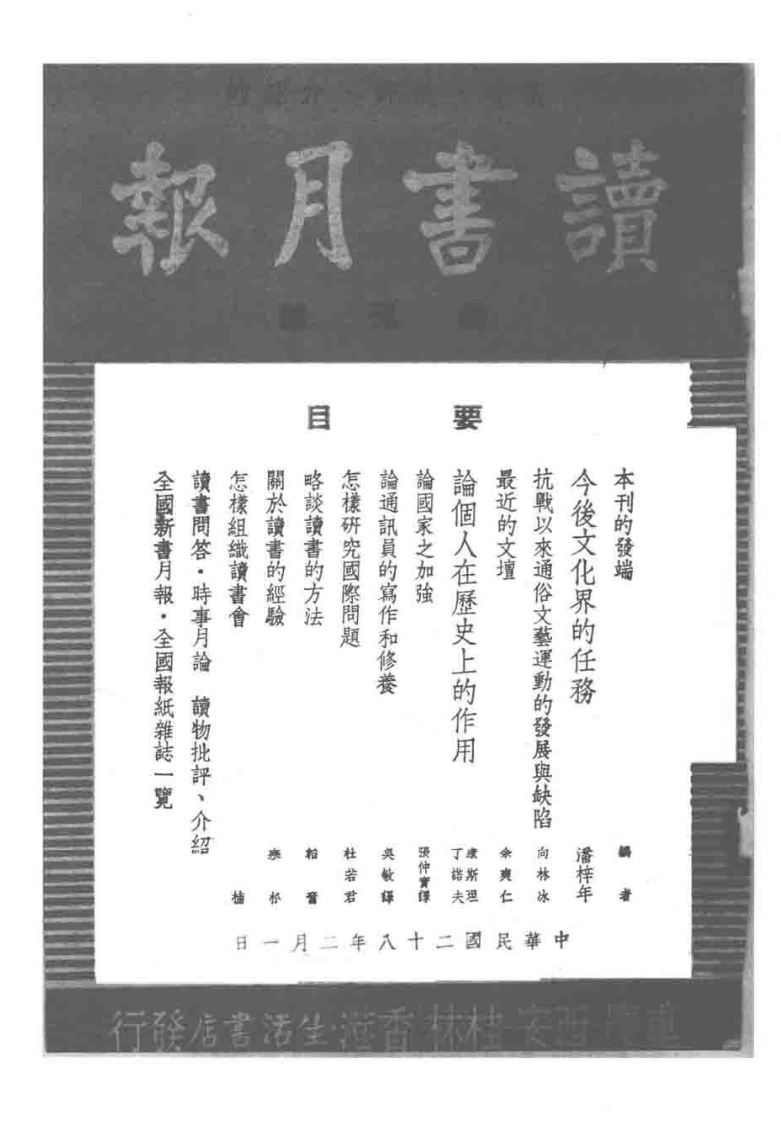 讀書月報
要目
本刊的發端
編者
今後文化界的任務
潘梓年
抗戰以來通俗文藝運動的發展與缺陷
向林冰
最近的文壇
余爽仁
論個人在歷史上的作用
康斯坦丁諾夫
論國家之加強
張仲實譯
論通訊員的寫作和修養
吳敏譯
怎樣研究國際問題
杜若君
略談讀書的方法
柏
關於讀書的經驗
怎樣組織讀書會
楠
讀書問答·時事月論 讀物批評、介紹
全國新書月報·全國報紙雜誌一覽
中華民國二十八年二月一日
重慶·西安·桂林·香港·生活書店發行